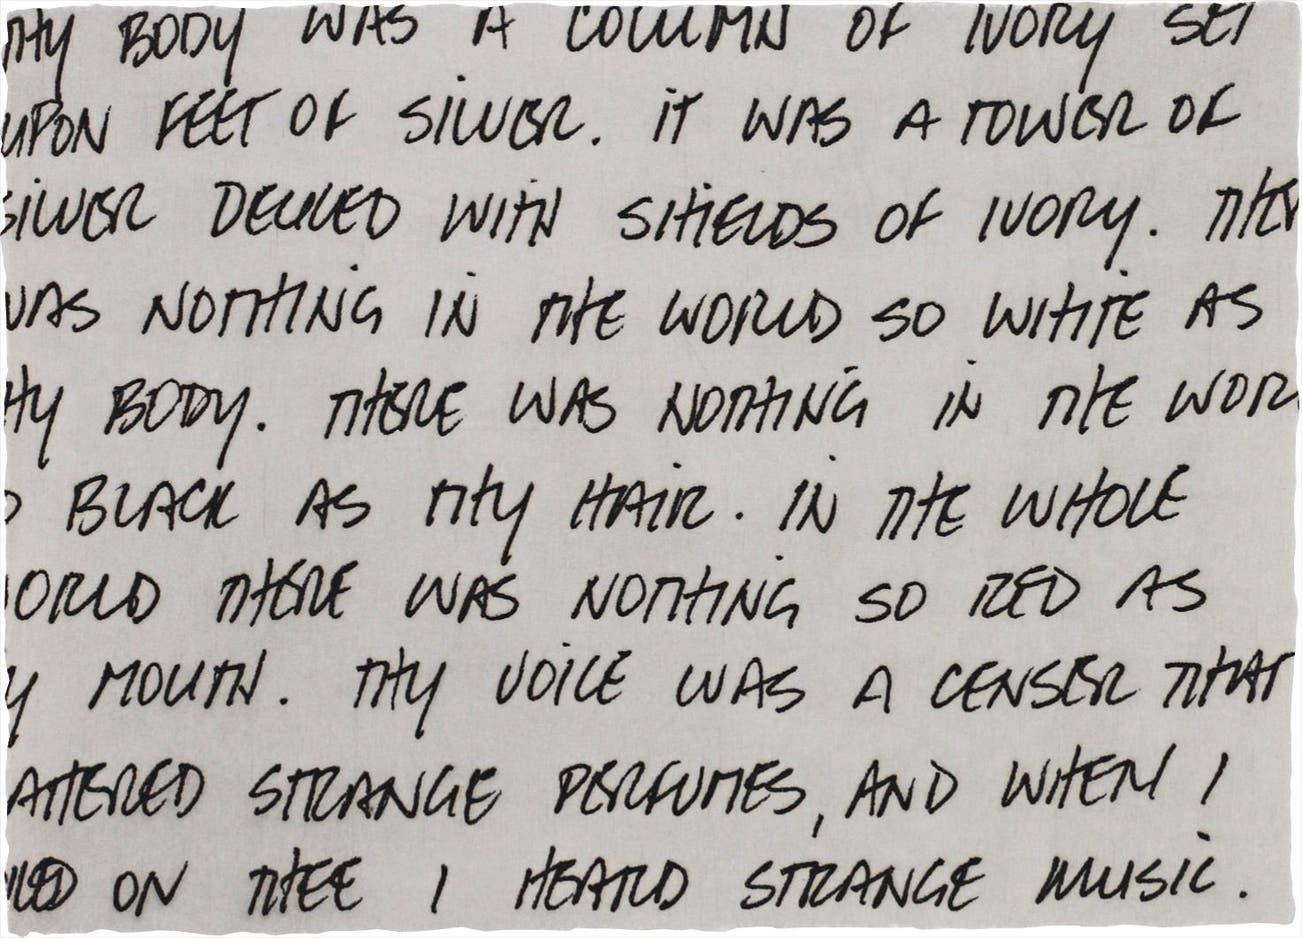 THY BODY WAS A COLUMN OF IVORY SET
UPON FEET OF SILVER. IT WAS A TOWER OF
SILVER DECKED WITH SHIELDS OF IVORY. THER
WAS NOTHING IN THE WORLD SO WHITE AS
HY BODY. THERE WAS NOTHING IN THE WOR
O BLACK AS THY HAIR. IN THE WHOLE
ORLD THERE WAS NOTHING SO RED AS
Y MOUTH. THY VOICE WAS A CENSER THAT
ATTERED STRANGE PERFUMES, AND WHEN I
KED ON THEE I HEARD STRANGE MUSIC.